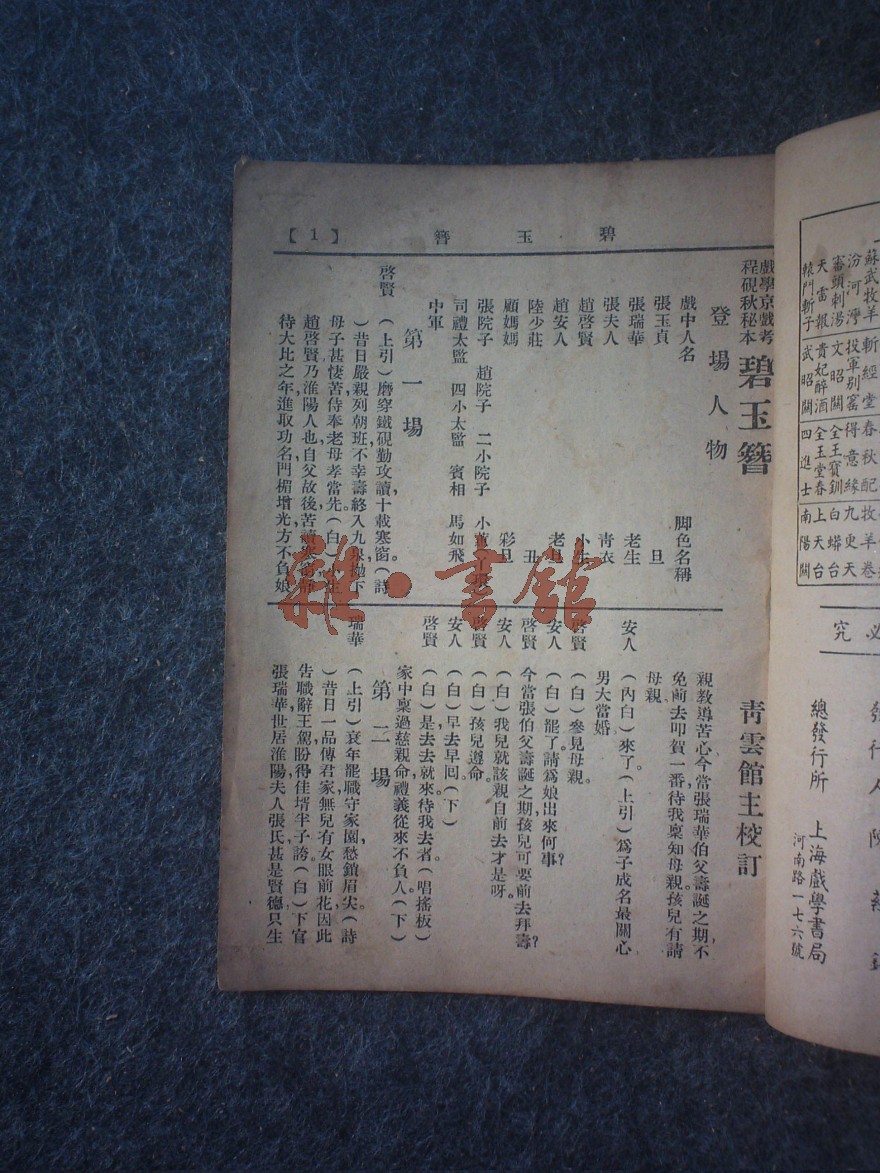 【1】 碧玉簪
戲學京戲考
程硯秋秘本
碧玉簪
青雲館主校訂
登場人物
戲中人名 脚色名稱
張玉貞 旦
張瑞華 老生
張夫人 青衣
趙啓賢 小生
趙安人 老旦
陸少莊 丑
顧媽媽 彩旦
張院子 趙院子 二小院子 小蕙
司禮太監 四小太監 賓相 馬如飛
中軍
第一場
啓賢 (上引)磨穿鐵硯勤攻讀十載寒窗。(詩
)昔日嚴親列朝班不幸壽終入九泉拋下
母子甚悽苦侍奉老母孝當先。(白)小生
趙啓賢乃淮陽人也自父故後,苦讀寒窗
待大比之年進取功名門楣增光方不負娘
親教導苦心今當張瑞華伯父壽誕之期不
免前去叩賀一番待我稟知母親孩兒有請
母親
安人 (內白)來了。(上引)爲子成名最關心
男大當婚
啓賢 (白)參見母親。
安人 (白)罷了請爲娘出來何事?
啓賢 今當張伯父壽誕之期孩兒可要前去拜壽?
安人 (白)我兒就該親自前去才是呀。
啓賢 (白)孩兒遵命。
安人 (白)早去早回。(下)
啓賢 (白)是去去就來待我去者(唱搖板)
家中稟過慈親命禮義從來不負人。(下)
第二場
瑞華 (上引)衰年罷職守家園愁鎖眉尖。(詩
)昔日一品傳君家無兒有女眼前花因此
告職辭王駕盼得佳壻半子誇。(白)下官
張瑞華世居淮陽夫人張氏甚是賢德只生
雜·書館
蘇武牧羊 斬經堂 春秋配
汾河灣 投軍別窰 得意緣 九更天
審頭刺湯 文昭關 全王寶釧 白蟒台
天雷報 貴妃醉酒 全玉堂春 上天台
轅門斬子 武昭關 四進士 南陽關
必究
發行人
總發行所 上海戲學書局
河南路一七六號